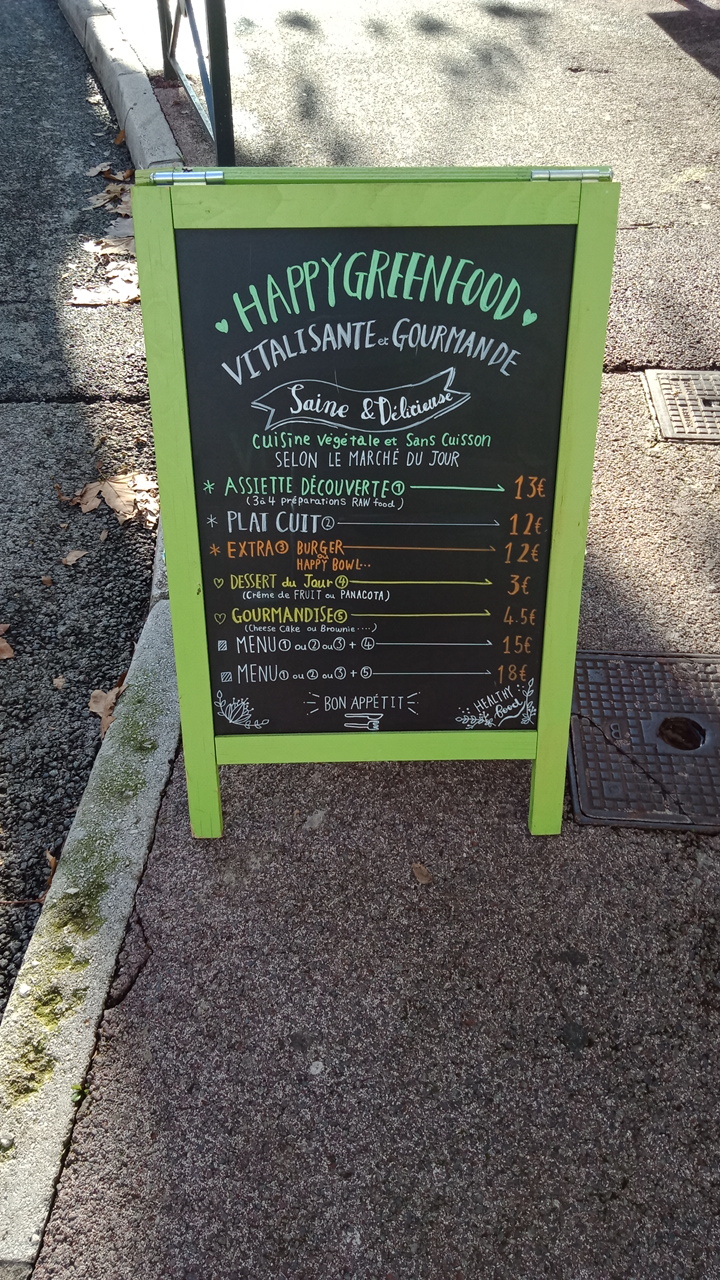 HAPPYGREENFOOD
VITALISANTE et GOURMANDE
Saine & Délicieuse
Cuisine Végétale et Sans Cuisson
SELON LE MARCHÉ DU JOUR
* ASSIETTE DÉCOUVERTE① 13€
(3 à 4 préparations RAW food)
* PLAT CUIT② 12€
* EXTRA③ BURGER 12€
ou
HAPPY BOWL...
♡ DESSERT du Jour④ 3€
(Crème de FRUIT ou PANACOTA)
♡ GOURMANDISE⑤ 4.5€
(Cheese Cake ou Brownie....)
MENU① ou② ou③ + ④ 15€
MENU① ou② ou③ + ⑤ 18€
BON APPÉTIT
HEALTHY
food